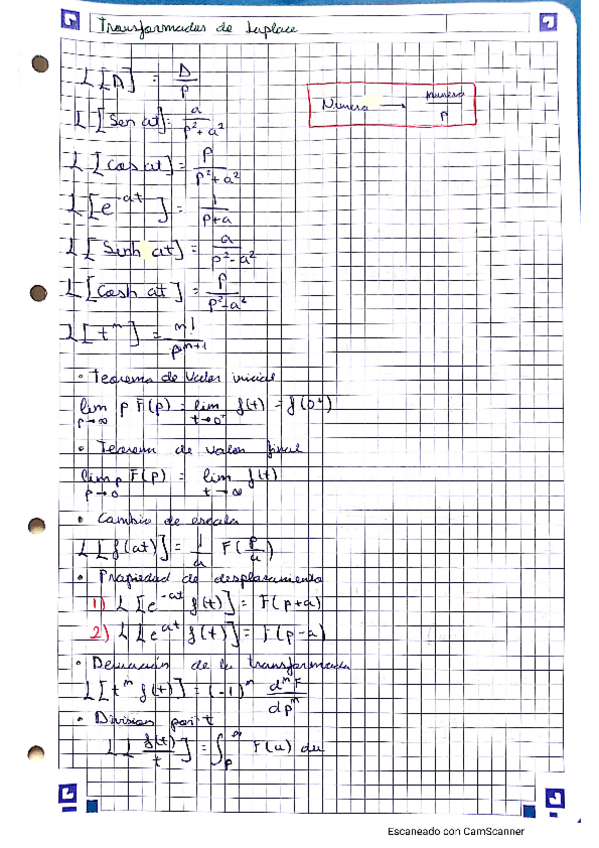 Transformadas de Laplace
L[A] = A/p
Número → número/p
L[Sen at] = a/(p²+a²)
L[Cos at] = p/(p²+a²)
L[e^-at] = 1/(p+a)
L[Sinh at] = a/(p²-a²)
L[Cosh at] = p/(p²-a²)
L[t^n] = n!/p^(n+1)
• Teorema de valor inicial
lim p→∞ p F(p) = lim t→0⁺ f(t) = f(0⁺)
• Teorema de valor final
lim p→0 p F(p) = lim t→∞ f(t)
• Cambio de escala
L[f(at)] = 1/a F(p/a)
• Propiedad de desplazamiento
1) L[e^-at f(t)] = F(p+a)
2) L[e^at f(t)] = F(p-a)
• Derivación de la transformada
L[t^n f(t)] = (-1)^n d^n F/dp^n
• Division por t
L[f(t)/t] = ∫p^∞ F(u) du
Escaneado con CamScanner